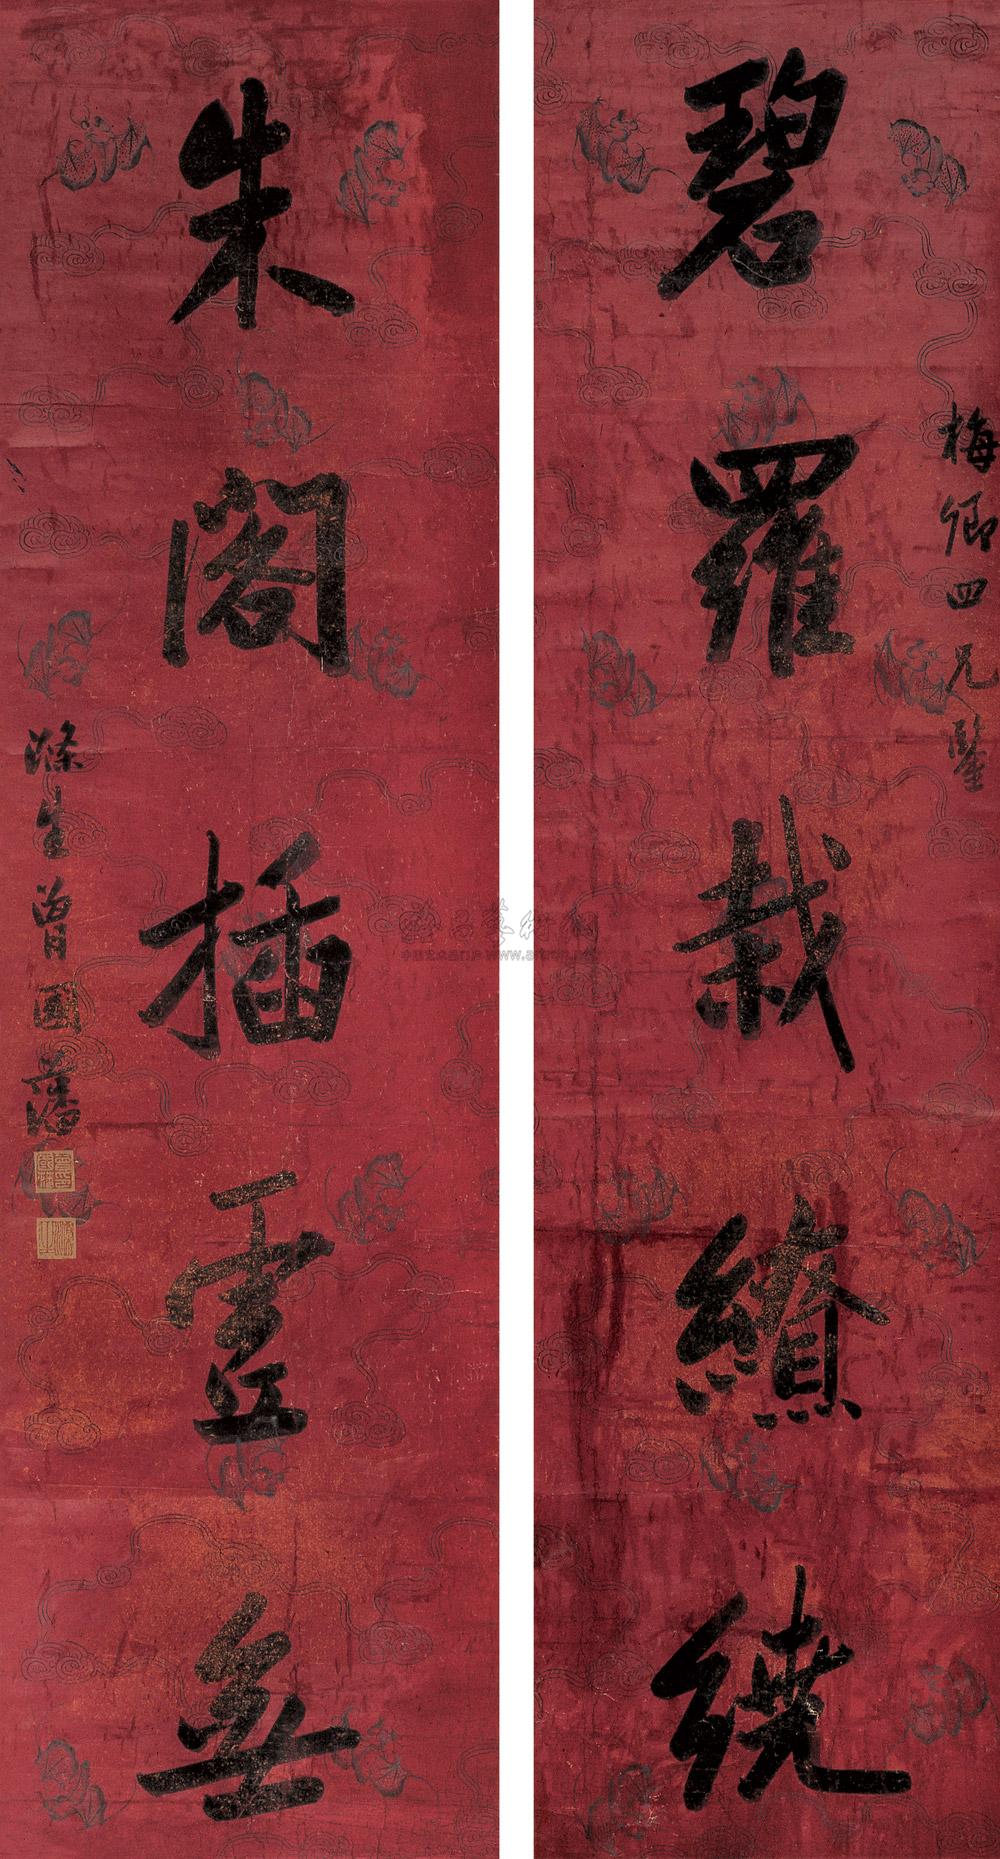 碧羅栽繚繞
梅卿四兄鑒
朱閣插虛無
滌生曾國藩